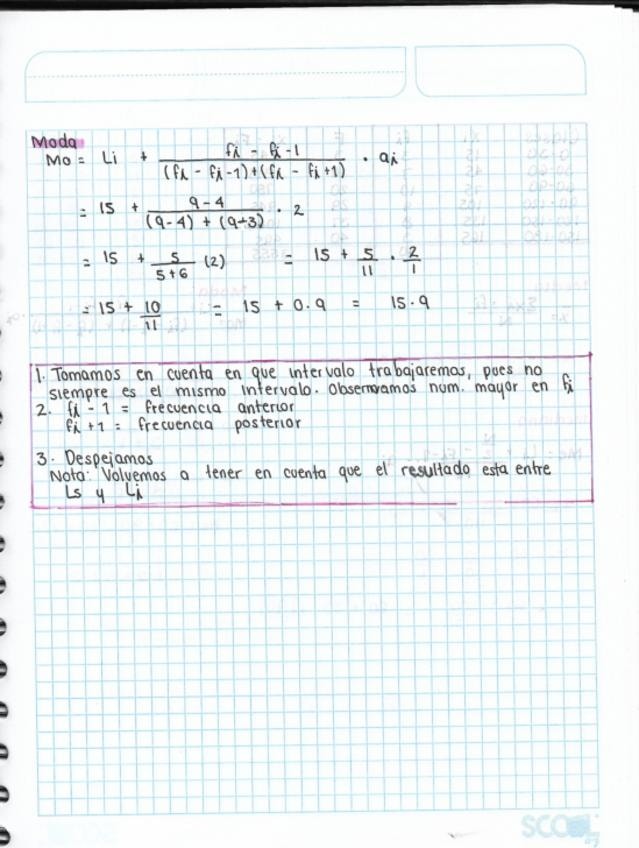 Moda
Mo = Li + fi - fi-1 / (fi - fi-1)+(fi - fi+1) · ai
= 15 + 9-4 / (9-4) + (9-3) · 2
= 15 + 5 / 5+6 (2) = 15 + 5/11 · 2/1
= 15 + 10/11 = 15 + 0.9 = 15.9
1. Tomamos en cuenta en que intervalo trabajaremos, pues no
siempre es el mismo intervalo. Observamos num. mayor en fi
2. fi - 1 = frecuencia anterior
fi + 1 = frecuencia posterior
3. Despejamos
Nota: Volvemos a tener en cuenta que el resultado esta entre
Ls y Li